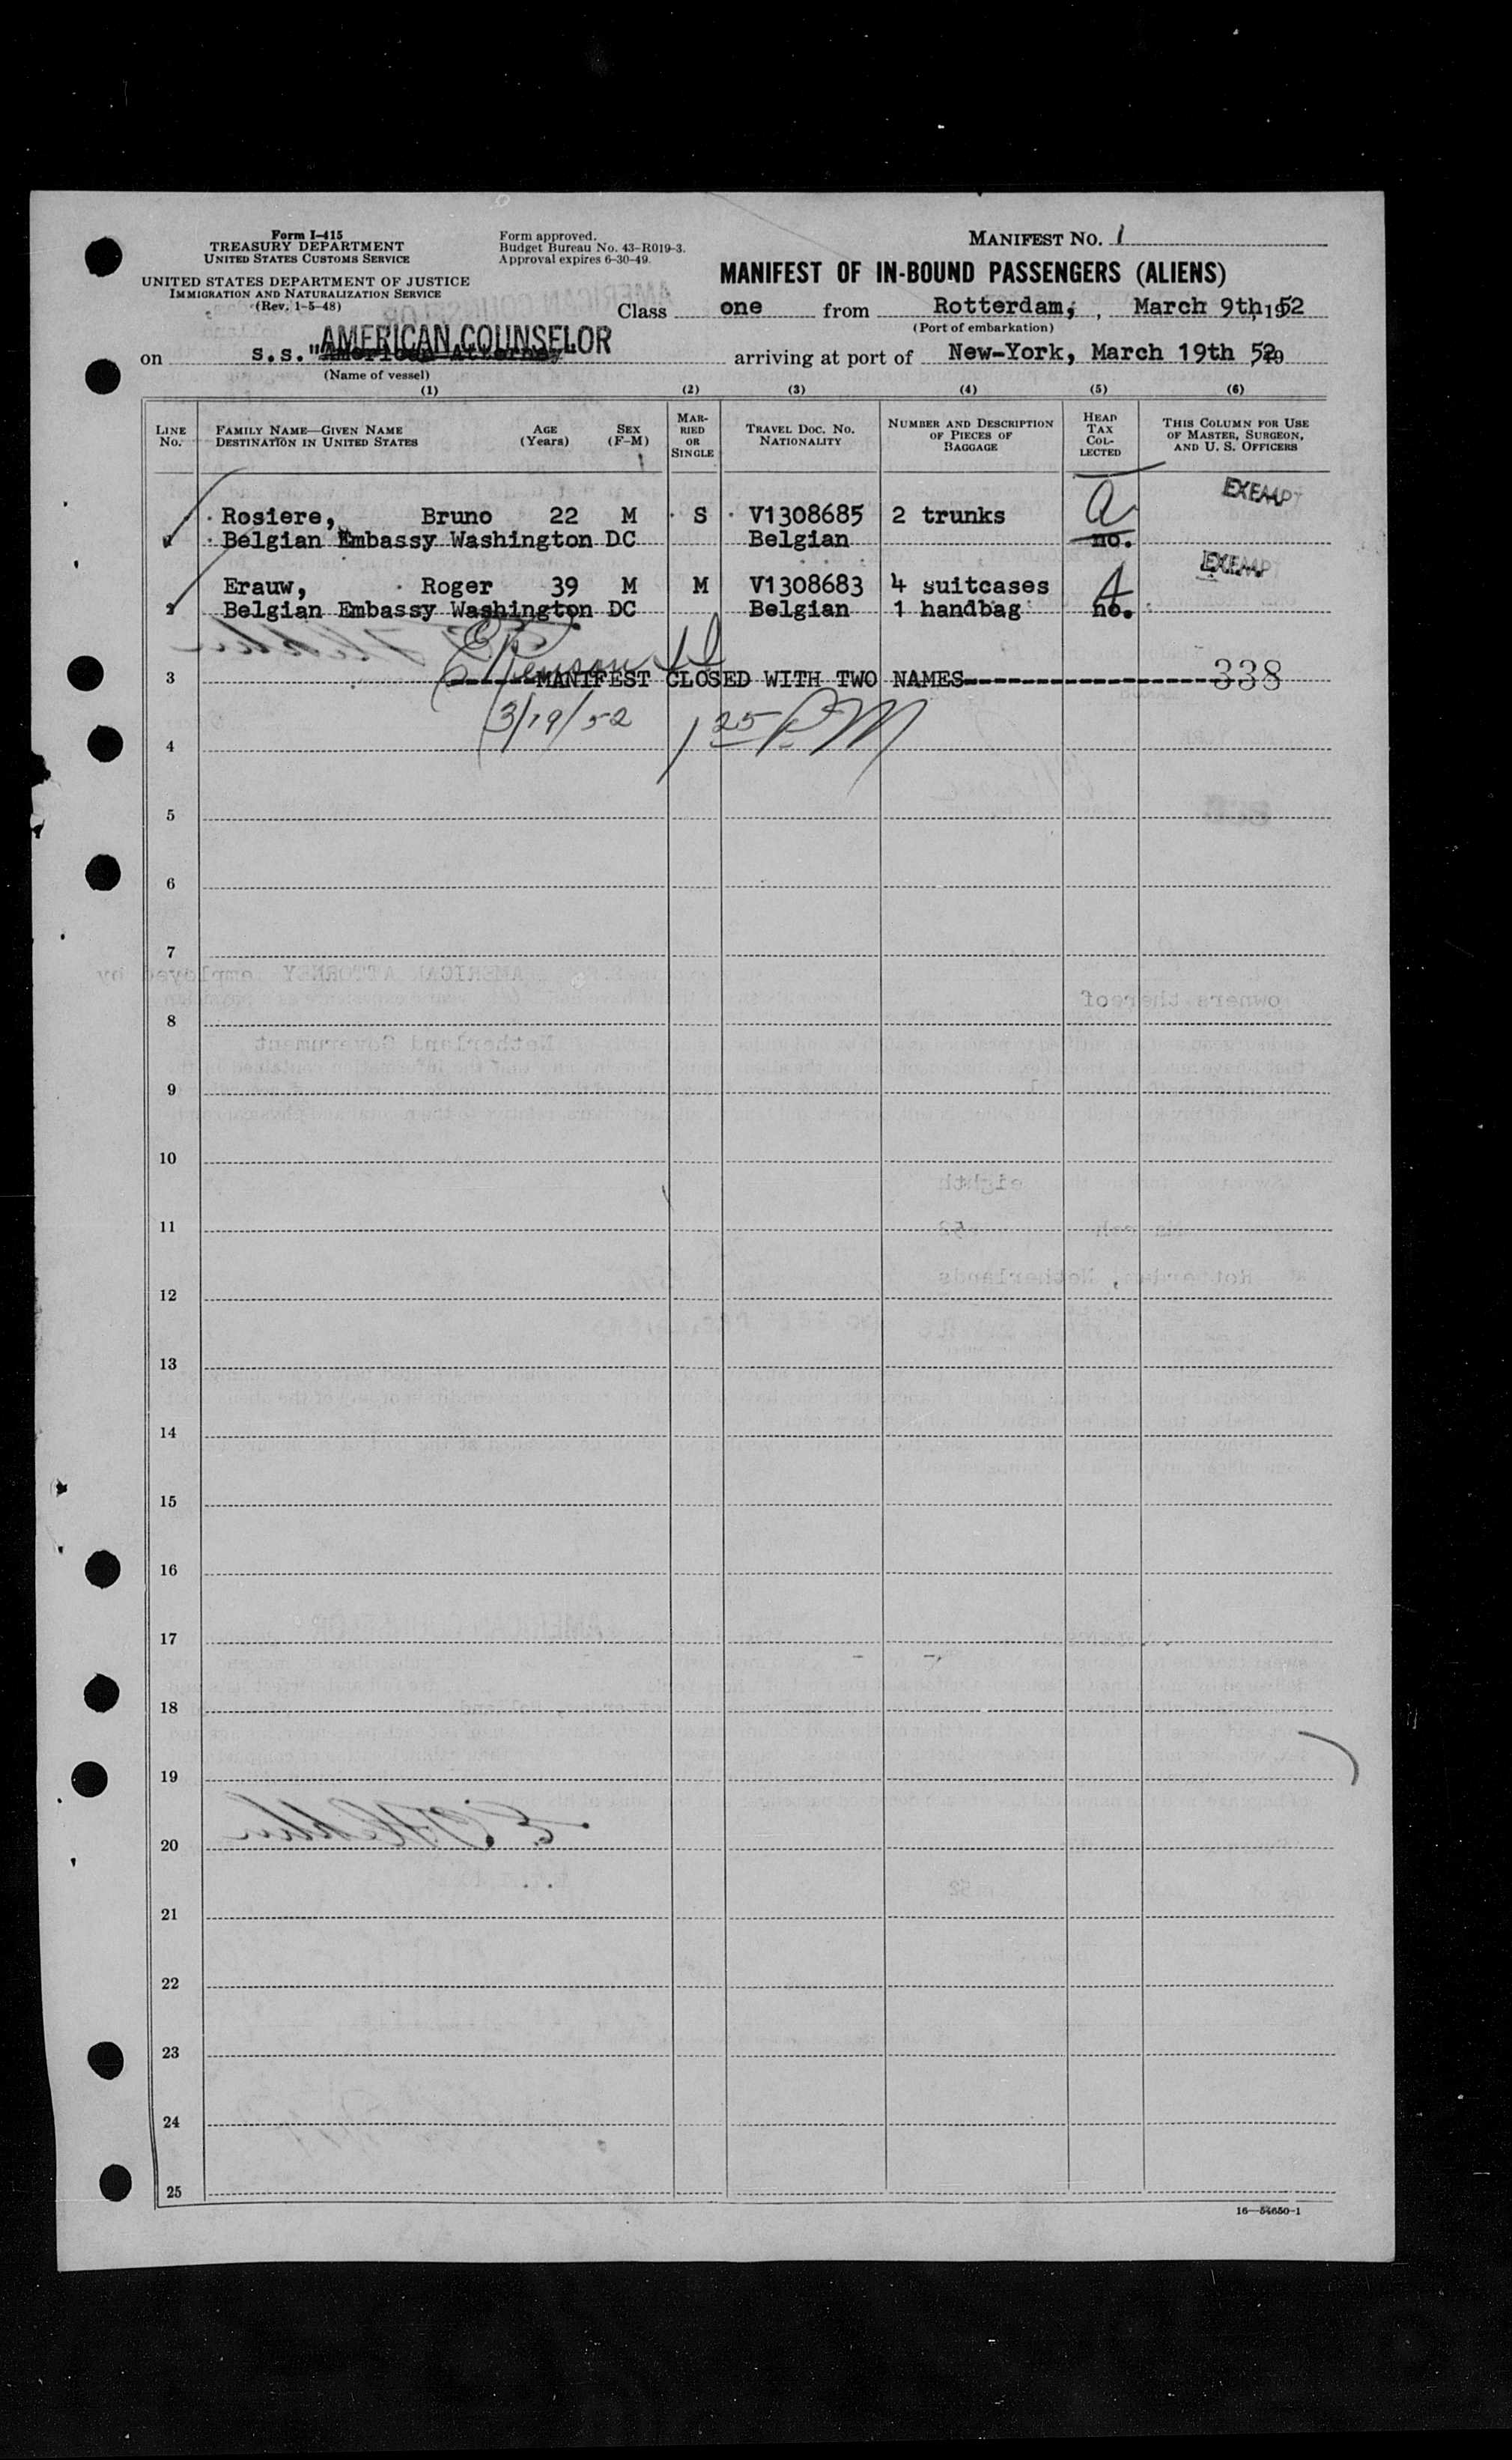 Form I-415
TREASURY DEPARTMENT
UNITED STATES CUSTOMS SERVICE
UNITED STATES DEPARTMENT OF JUSTICE
IMMIGRATION AND NATURALIZATION SERVICE
(Rev. 1-5-48)
Form approved.
Budget Bureau No. 43-R019-3.
Approval expires 6-30-49.
MANIFEST NO. 1
MANIFEST OF IN-BOUND PASSENGERS (ALIENS)
Class one from Rotterdam, March 9th, 1952
(Port of embarkation)
on s.s. "American Attorney AMERICAN COUNSELOR arriving at port of New-York, March 19th 52, 19
(Name of vessel)
(1) (2) (3) (4) (5) (6)
LINE No. FAMILY NAME—GIVEN NAME DESTINATION IN UNITED STATES AGE (Years) SEX (F-M) MARRIED OR SINGLE TRAVEL DOC. NO. NATIONALITY NUMBER AND DESCRIPTION OF PIECES OF BAGGAGE HEAD TAX COLLECTED THIS COLUMN FOR USE OF MASTER, SURGEON, AND U. S. OFFICERS
Rosiere, Bruno 22 M S V1308685 2 trunks a EXEMPT
1 Belgian Embassy Washington DC Belgian no.
Erauw, Roger 39 M M V1308683 4 suitcases A EXEMPT
2 Belgian Embassy Washington DC Belgian 1 handbag no.
3 MANIFEST CLOSED WITH TWO NAMES 338
3/19/52 1 25 PM
4
5
6
7
8
9
10
11
12
13
14
15
16
17
18
19
20
21
22
23
24
25
16—54650-1